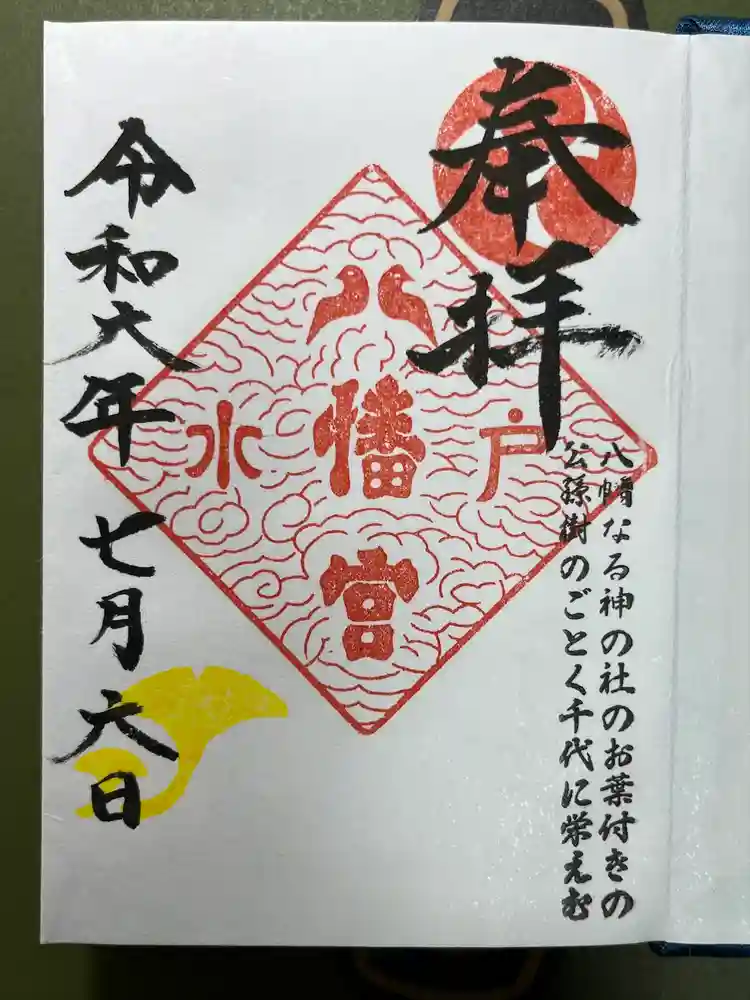 奉拝
八幡なる神の社のお葉付きの
公孫樹のごとく千代に栄えむ
水戸
八幡宮
令和六年七月六日